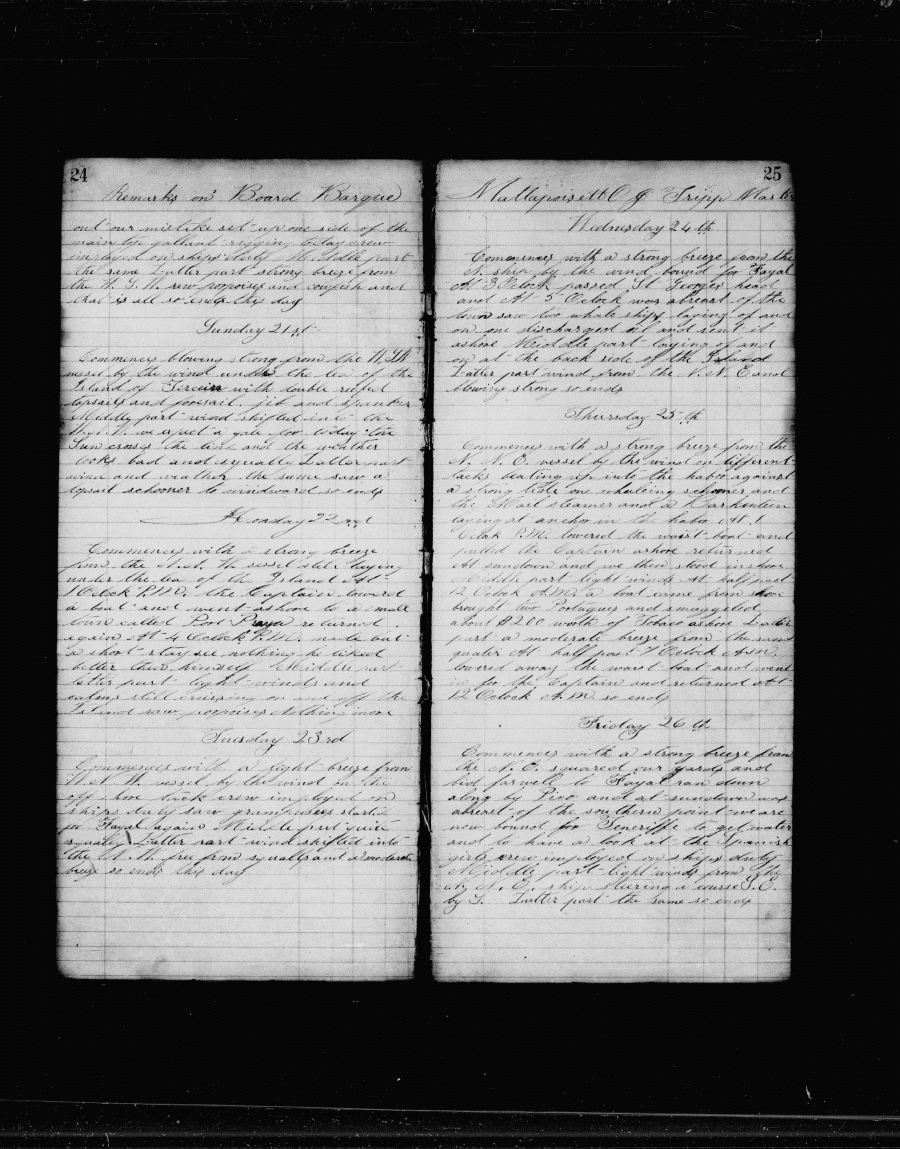 24
Remarks on Board Barque
out our mistake set up one side of the
main top gallant rigging today crew
imployed on ships duty Middle part
the same Latter part strong breeze from
the W. S. W. saw porpoises and cowfish and
that is all so ends this day
Sunday 21st
Commences blowing strong from the W.S.W
vessel by the wind under the lea of the
Island of Terceira with double reefed
topsails and foresail jib and spanker
Middle part wind shifted into the
we expect a gale for today the
Sun crosses the line and the weather
looks bad and squally Latter part
wind and weather the same saw a
topsail schooner to windward so ends
Monday 22nd
Commences with a strong breeze
from the vessel still laying
under the lea of the Island At
1 Oclock P.M. the Captain lowerd
a boat and went ashore to a small
town called Port Praya returned
again At 4 Oclock P.M. made but
a short stay see nothing he liked
better than himself Middle part
latter part light winds and
calms still cruising on and off the
Island saw porpoises Nothing more
Tuesday 23rd
Commences with a light breeze from
W. vessel by the wind on the
off shore tack crew imployed on
ships duty saw grampuses started
for Fayal again Middle part quite
squally Latter part wind shifted into
the N. W. free from squalls and a moderate
breeze so ends this day
25
Mattapoisett O J Tripp Master
Wednesday 24th
Commences with a strong breeze from the
N. ship by the wind bound for Fayal
At 3 Oclock passed St Georges head
and At 5 Oclock was abreast of the
town saw two whale ships laying of and
on one discharged oil and sent it
ashore Middle part laying of and
on at the back side of the Island
Latter part wind from the N. N. E and
blowing strong so ends
Thursday 25th
Commences with a strong breeze from the
N. N. E. vessel by the wind on different
tacks beating up into the habor against
a strong tide one whaleing schooner and
the Mail steamer and a Barkenteen
laying at anchor in the habor At 1
Oclok P.M. lowered the waist boat and
pulled the Captain ashore returned
At sundown and we then stood inshore
Middle part light winds At half past
12 Oclock A.M. a boat came from shore
brought two Portugues and smuggeled
about $200 worth of Tobaco ashore Latter
part a moderate breeze from the same
quater At half past 7 Oclock A.M.
lowered away the waist boat and went
in for the Captain and returned At
12 Oclock A.M. so ends
Friday 26th
Commences with a strong breeze from
the N. E. squared our yards and
bid farwell to Fayal ran down
along by Pico and at sundown was
abreast of the southern point we are
now bound for Teneriffe to get water
and to have a look at the Spanish
girls crew imployed on ships duty
Middle part light winds from the
N. E. ship stearing a course S. E.
by S. Latter part the same so ends